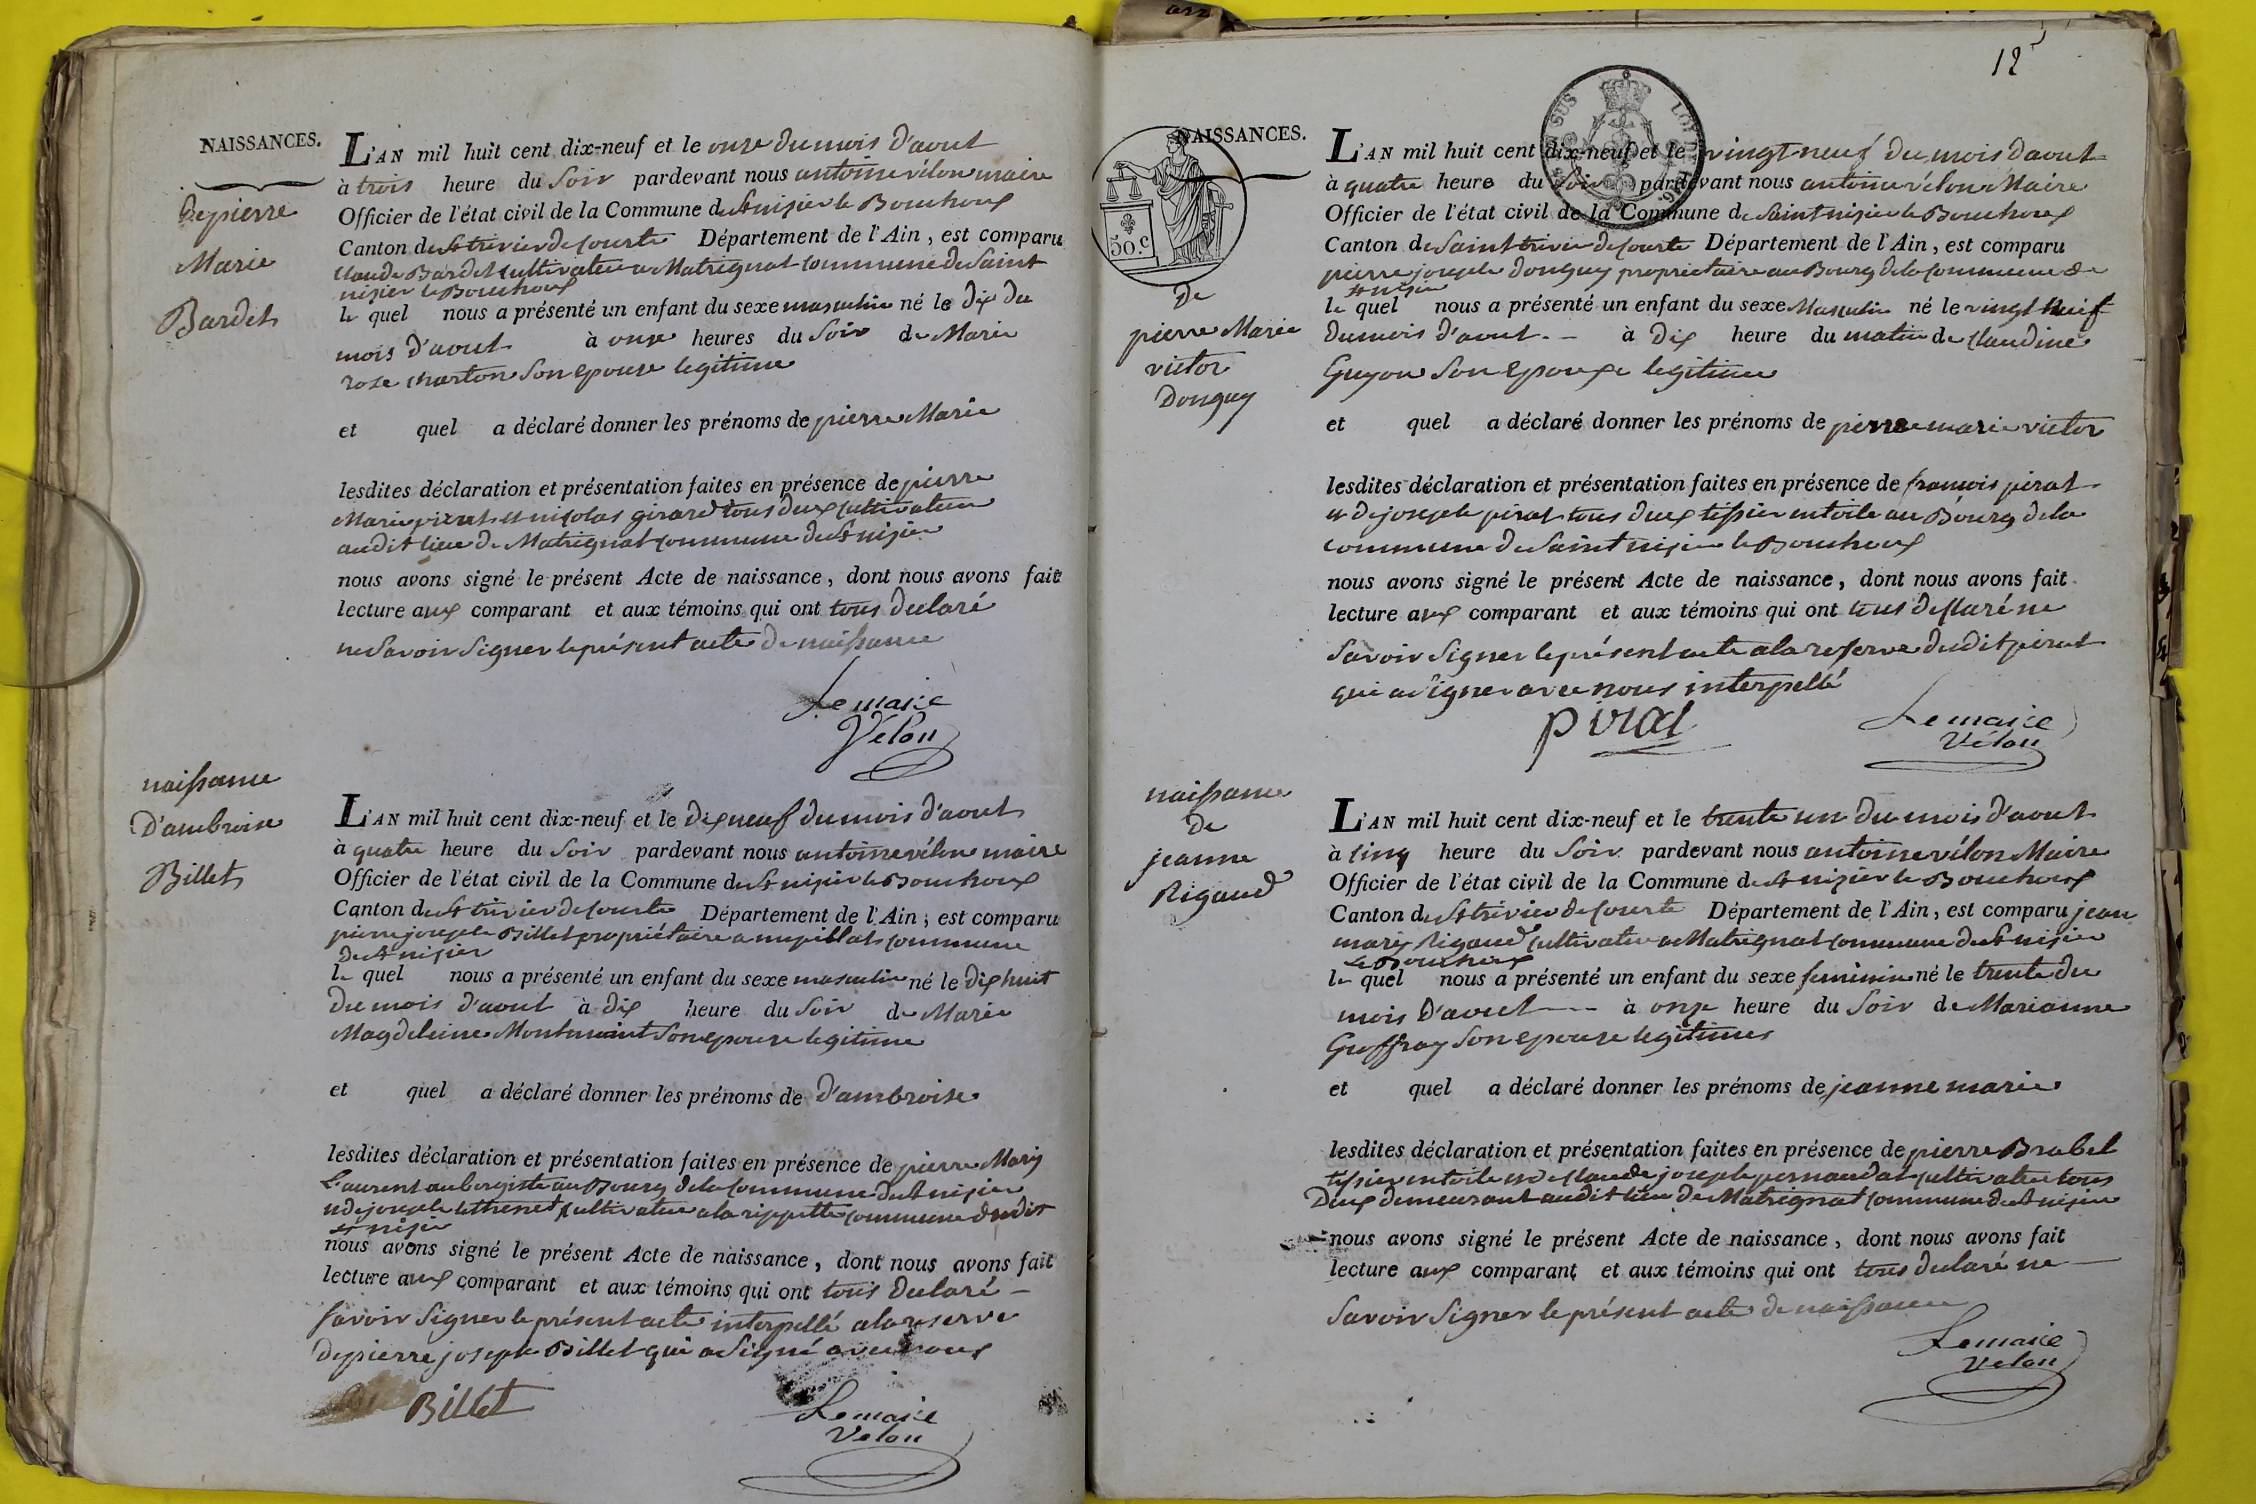 NAISSANCES.
De pierre
Marie
Bardet
L'AN mil huit cent dix-neuf et le onze du mois d'aout
à trois heure du Soir pardevant nous antoine vélon maire
Officier de l'état civil de la Commune de St nizier le Bouchoux
Canton de St trivier de Courte Département de l'Ain, est comparu
Claude Bardet Cultivateur a Matrignat Commune de Saint
nizier le Bouchoux
le quel nous a présenté un enfant du sexe masculin né le dix du
mois d'aout à onze heures du Soir de Marie
roze charton Son epouse legitime
et quel a déclaré donner les prénoms de pierre Marie
lesdites déclaration et présentation faites en présence de pierre
Marie et nicolas girard tous deux Cultivateur
audit lieu de Matrignat Commune de St nizier
nous avons signé le présent Acte de naissance, dont nous avons fait
lecture aux comparant et aux témoins qui ont tous declaré
ne Savoir Signer le présent acte de naissance
Le maire
Vélon
naissance
D'ambroise
Billet
L'AN mil huit cent dix-neuf et le dix neuf du mois d'aout
à quatre heure du Soir pardevant nous antoine vélon maire
Officier de l'état civil de la Commune de St nizier le Bouchoux
Canton de St trivier de Courte Département de l'Ain, est comparu
pierre joseph Billet propriétaire a commune
de St nizier
le quel nous a présenté un enfant du sexe masculin né le dix huit
du mois d'aout à dix heure du Soir de Marie
Magdeleine Son epouse legitime
et quel a déclaré donner les prénoms de D'ambroise
lesdites déclaration et présentation faites en présence de pierre Marie
Laurent aubergiste au Bourg de la Commune de St nizier
et de joseph Cultivateur a la commune dudit
St nizier
nous avons signé le présent Acte de naissance, dont nous avons fait
lecture aux comparant et aux témoins qui ont tous declaré
Savoir Signer le présent acte interpellé a la reserve
de pierre joseph Billet qui a Signé avec nous
Billet
Le maire
Velon
12
NAISSANCES.
50.c
De
pierre Marie
victor
Donguy
L'AN mil huit cent dix-neuf et le vingt neuf du mois d'aout
à quatre heure du Soir pardevant nous antoine vélon Maire
Officier de l'état civil de la Commune de Saint nizier le Bouchoux
Canton de Saint trivier de Courte Département de l'Ain, est comparu
pierre joseph donguy propriétaire au Bourg de la Commune de
St nizier
le quel nous a présenté un enfant du sexe Masculin né le vingt neuf
du mois d'aout à dix heure du matin de Claudine
Guyon Son Epouse legitime
et quel a déclaré donner les prénoms de pierre marie victor
lesdites déclaration et présentation faites en présence de francois pirat
et de joseph pirat tous deux tissier en toile au Bourg de la
commune de Saint nizier le Bouchoux
nous avons signé le présent Acte de naissance, dont nous avons fait
lecture aux comparant et aux témoins qui ont tous declaré ne
Savoir Signer le présent acte a la reserve dudit pirat
qui a Signer avec nous interpellé
pirat
Le maire
Vélon
naissance
De
jeanne
Rigaud
L'AN mil huit cent dix-neuf et le trente un du mois d'aout
à cinq heure du Soir pardevant nous antoine vélon Maire
Officier de l'état civil de la Commune de St nizier le Bouchoux
Canton de St trivier de Courte Département de l'Ain, est comparu jean
marie Rigaud Cultivateur a Matrignat commune de St nizier
le Bouchoux
le quel nous a présenté un enfant du sexe feminin né le trente du
mois D'aout à onze heure du Soir de Marianne
Geoffray Son epouse legitimes
et quel a déclaré donner les prénoms de jeanne marie
lesdites déclaration et présentation faites en présence de pierre Brabel
tissier en toile et de Claude joseph Cultivateur tous
Deux demeurant audit lieu de Matrignat Commune de St nizier
nous avons signé le présent Acte de naissance, dont nous avons fait
lecture aux comparant et aux témoins qui ont tous declaré ne
Savoir Signer le présent acte de naissance
Le maire
Velon